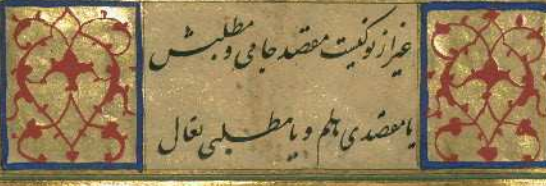 غیر از تو کیست مقصد جامی و مطلبش
یا مقصدی هلم و یا مطلبی تعال